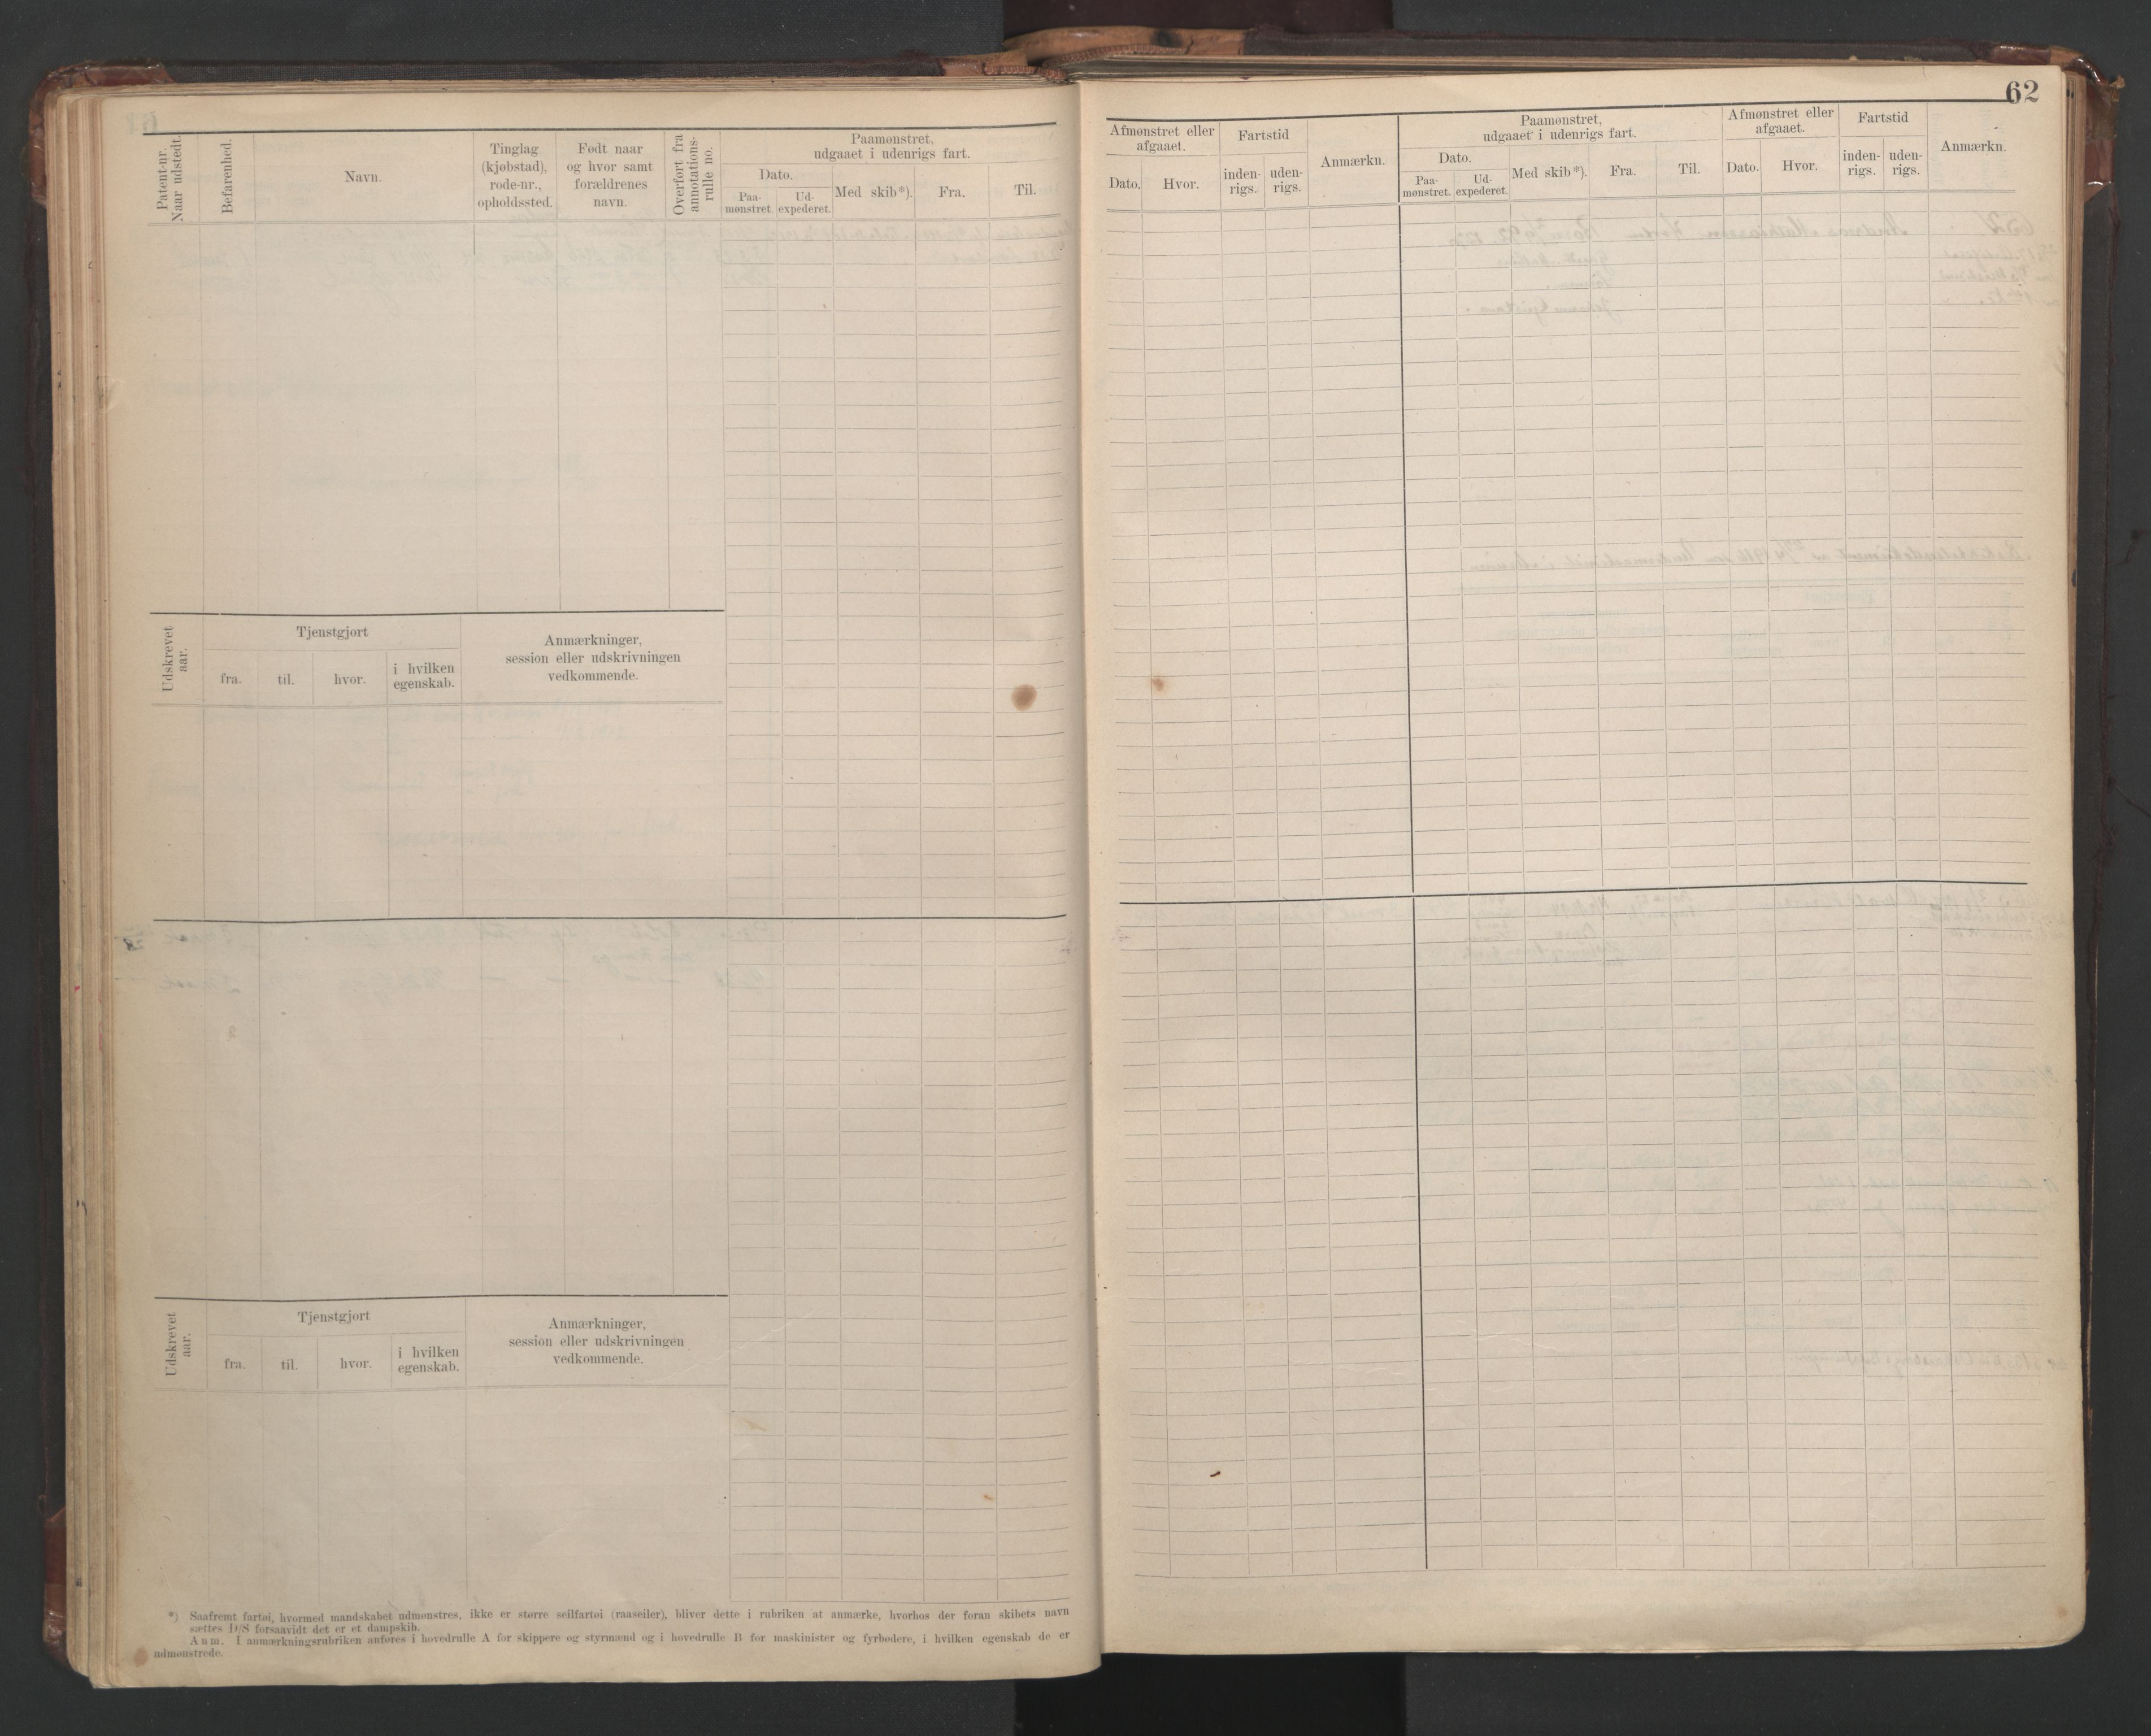 62
Patent-nr.
Naar udstedt.
Befarenhed.
Navn.
Tinglag
(kjøbstad),
rode-nr.,
opholdssted.
Født naar
og hvor samt
forældrenes
navn.
Overført fra
annotations-
rulle no.
Paamønstret,
udgaaet i udenrigs fart.
Dato.
Paa-
mønstret.
Ud-
expederet.
Med skib*).
Fra.
Til.
Udskrevet
aar.
Tjenstgjort
fra.
til.
hvor.
i hvilken
egenskab.
Anmærkninger,
session eller udskrivningen
vedkommende.
Udskrevet
aar.
Tjenstgjort
fra.
til.
hvor.
i hvilken
egenskab.
Anmærkninger,
session eller udskrivningen
vedkommende.
*) Saafremt fartøi, hvormed mandskabet udmønstres, ikke er større seilfartøi (raaseiler), bliver dette i rubriken at anmærke, hvorhos der foran skibets navn
sættes D/S forsaavidt det er et dampskib.
Anm. I anmærkningsrubriken anføres i hovedrulle A for skippere og styrmænd og i hovedrulle B for maskinister og fyrbødere, i hvilken egenskab de er
udmønstrede.
Afmønstret eller
afgaaet.
Dato.
Hvor.
Fartstid
inden-
rigs.
uden-
rigs.
Anmærkn.
Paamønstret,
udgaaet i udenrigs fart.
Dato.
Paa-
mønstret.
Ud-
expederet.
Med skib*).
Fra.
Til.
Afmønstret eller
afgaaet.
Dato.
Hvor.
Fartstid
inden-
rigs.
uden-
rigs.
Anmærkn.